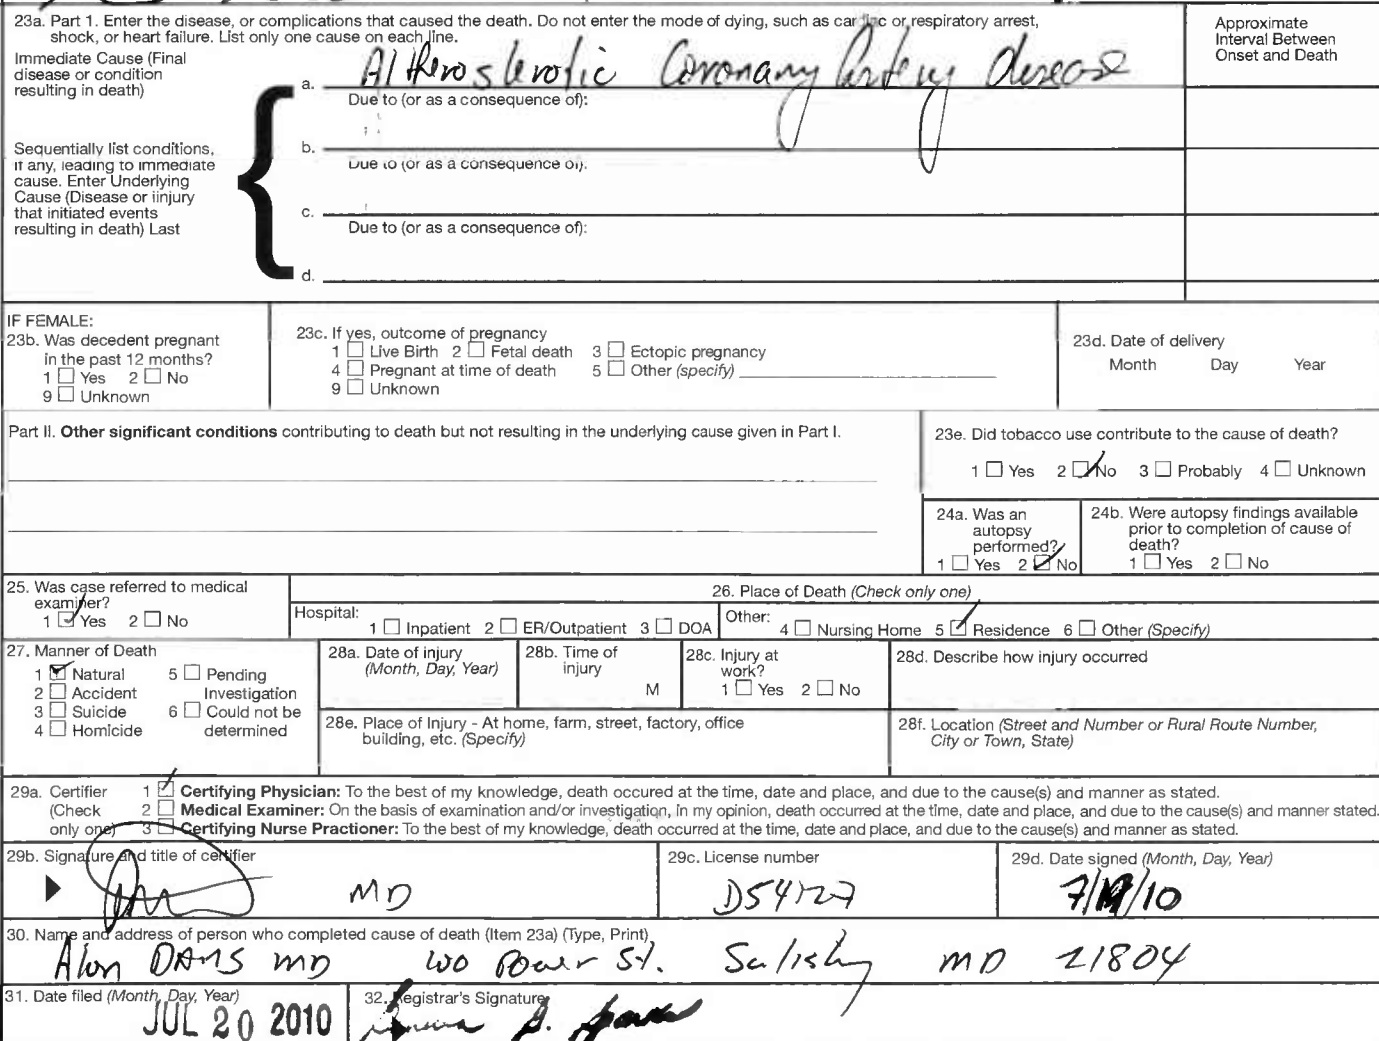 23a. Part 1. Enter the disease, or complications that caused the death. Do not enter the mode of dying, such as cardiac or respiratory arrest,
shock, or heart failure. List only one cause on each line.
Approximate
Interval Between
Onset and Death
Immediate Cause (Final
disease or condition
resulting in death)
a. Altheroslerotic Coronary Artery disease
Due to (or as a consequence of):
b.
Due to (or as a consequence of):
Sequentially list conditions,
if any, leading to immediate
cause. Enter Underlying
Cause (Disease or iinjury
that initiated events
resulting in death) Last
c.
Due to (or as a consequence of):
d.
IF FEMALE:
23b. Was decedent pregnant
in the past 12 months?
1 Yes 2 No
9 Unknown
23c. If yes, outcome of pregnancy
1 Live Birth 2 Fetal death 3 Ectopic pregnancy
4 Pregnant at time of death 5 Other (specify)
9 Unknown
23d. Date of delivery
Month Day Year
Part II. Other significant conditions contributing to death but not resulting in the underlying cause given in Part I.
23e. Did tobacco use contribute to the cause of death?
1 Yes 2 No 3 Probably 4 Unknown
24a. Was an
autopsy
performed?
1 Yes 2 No
24b. Were autopsy findings available
prior to completion of cause of
death?
1 Yes 2 No
25. Was case referred to medical
examiner?
1 Yes 2 No
26. Place of Death (Check only one)
Hospital: 1 Inpatient 2 ER/Outpatient 3 DOA
Other: 4 Nursing Home 5 Residence 6 Other (Specify)
27. Manner of Death
1 Natural 5 Pending
2 Accident Investigation
3 Suicide 6 Could not be
4 Homicide determined
28a. Date of injury
(Month, Day, Year)
28b. Time of
injury
M
28c. Injury at
work?
1 Yes 2 No
28d. Describe how injury occurred
28e. Place of Injury - At home, farm, street, factory, office
building, etc. (Specify)
28f. Location (Street and Number or Rural Route Number,
City or Town, State)
29a. Certifier
(Check
only one)
1 Certifying Physician: To the best of my knowledge, death occured at the time, date and place, and due to the cause(s) and manner as stated.
2 Medical Examiner: On the basis of examination and/or investigation, in my opinion, death occurred at the time, date and place, and due to the cause(s) and manner stated.
3 Certifying Nurse Practioner: To the best of my knowledge, death occurred at the time, date and place, and due to the cause(s) and manner as stated.
29b. Signature and title of certifier
MD
29c. License number
D54127
29d. Date signed (Month, Day, Year)
7/19/10
30. Name and address of person who completed cause of death (Item 23a) (Type, Print)
Alon DAVIS MD 100 Power St. Salisbury MD 21804
31. Date filed (Month, Day, Year)
JUL 20 2010
32. Registrar's Signature